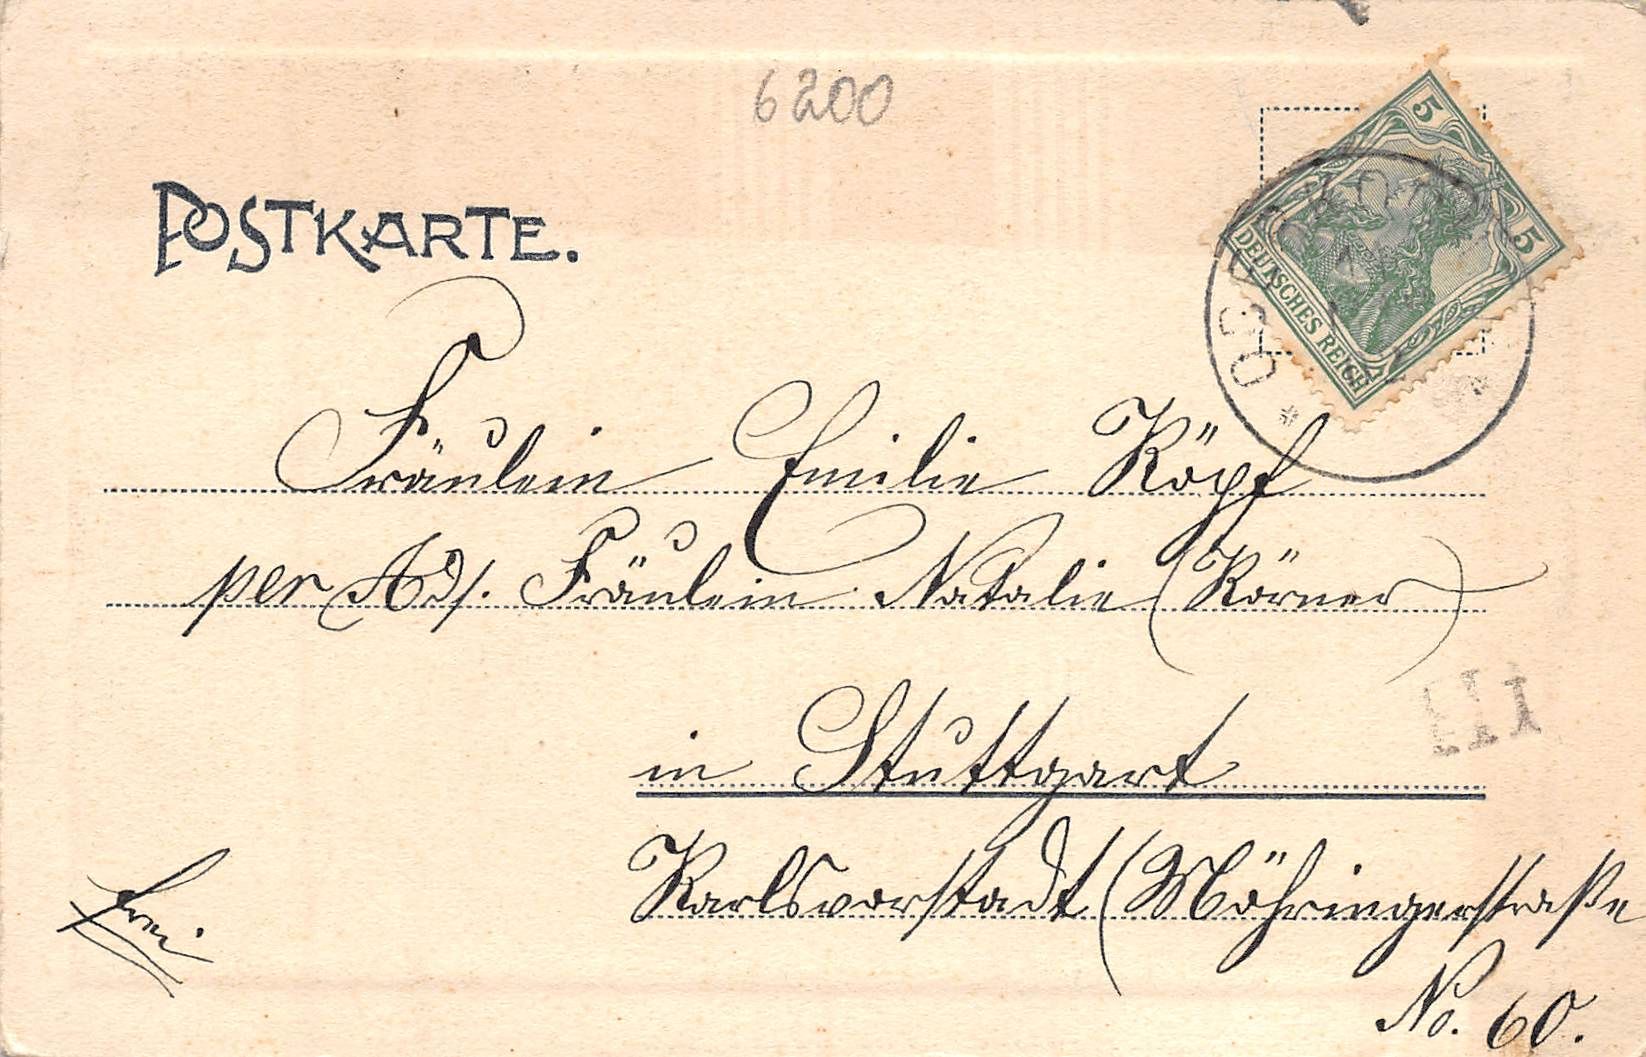 6200
POSTKARTE.
5
5
DEUTSCHES REICH
Fräulein Emilie Köpf
per Ads. Fräulein Natalie (Körner)
III
in Stuttgart
Karlsvorstadt (Möhringerstraße
frei.
No. 60.